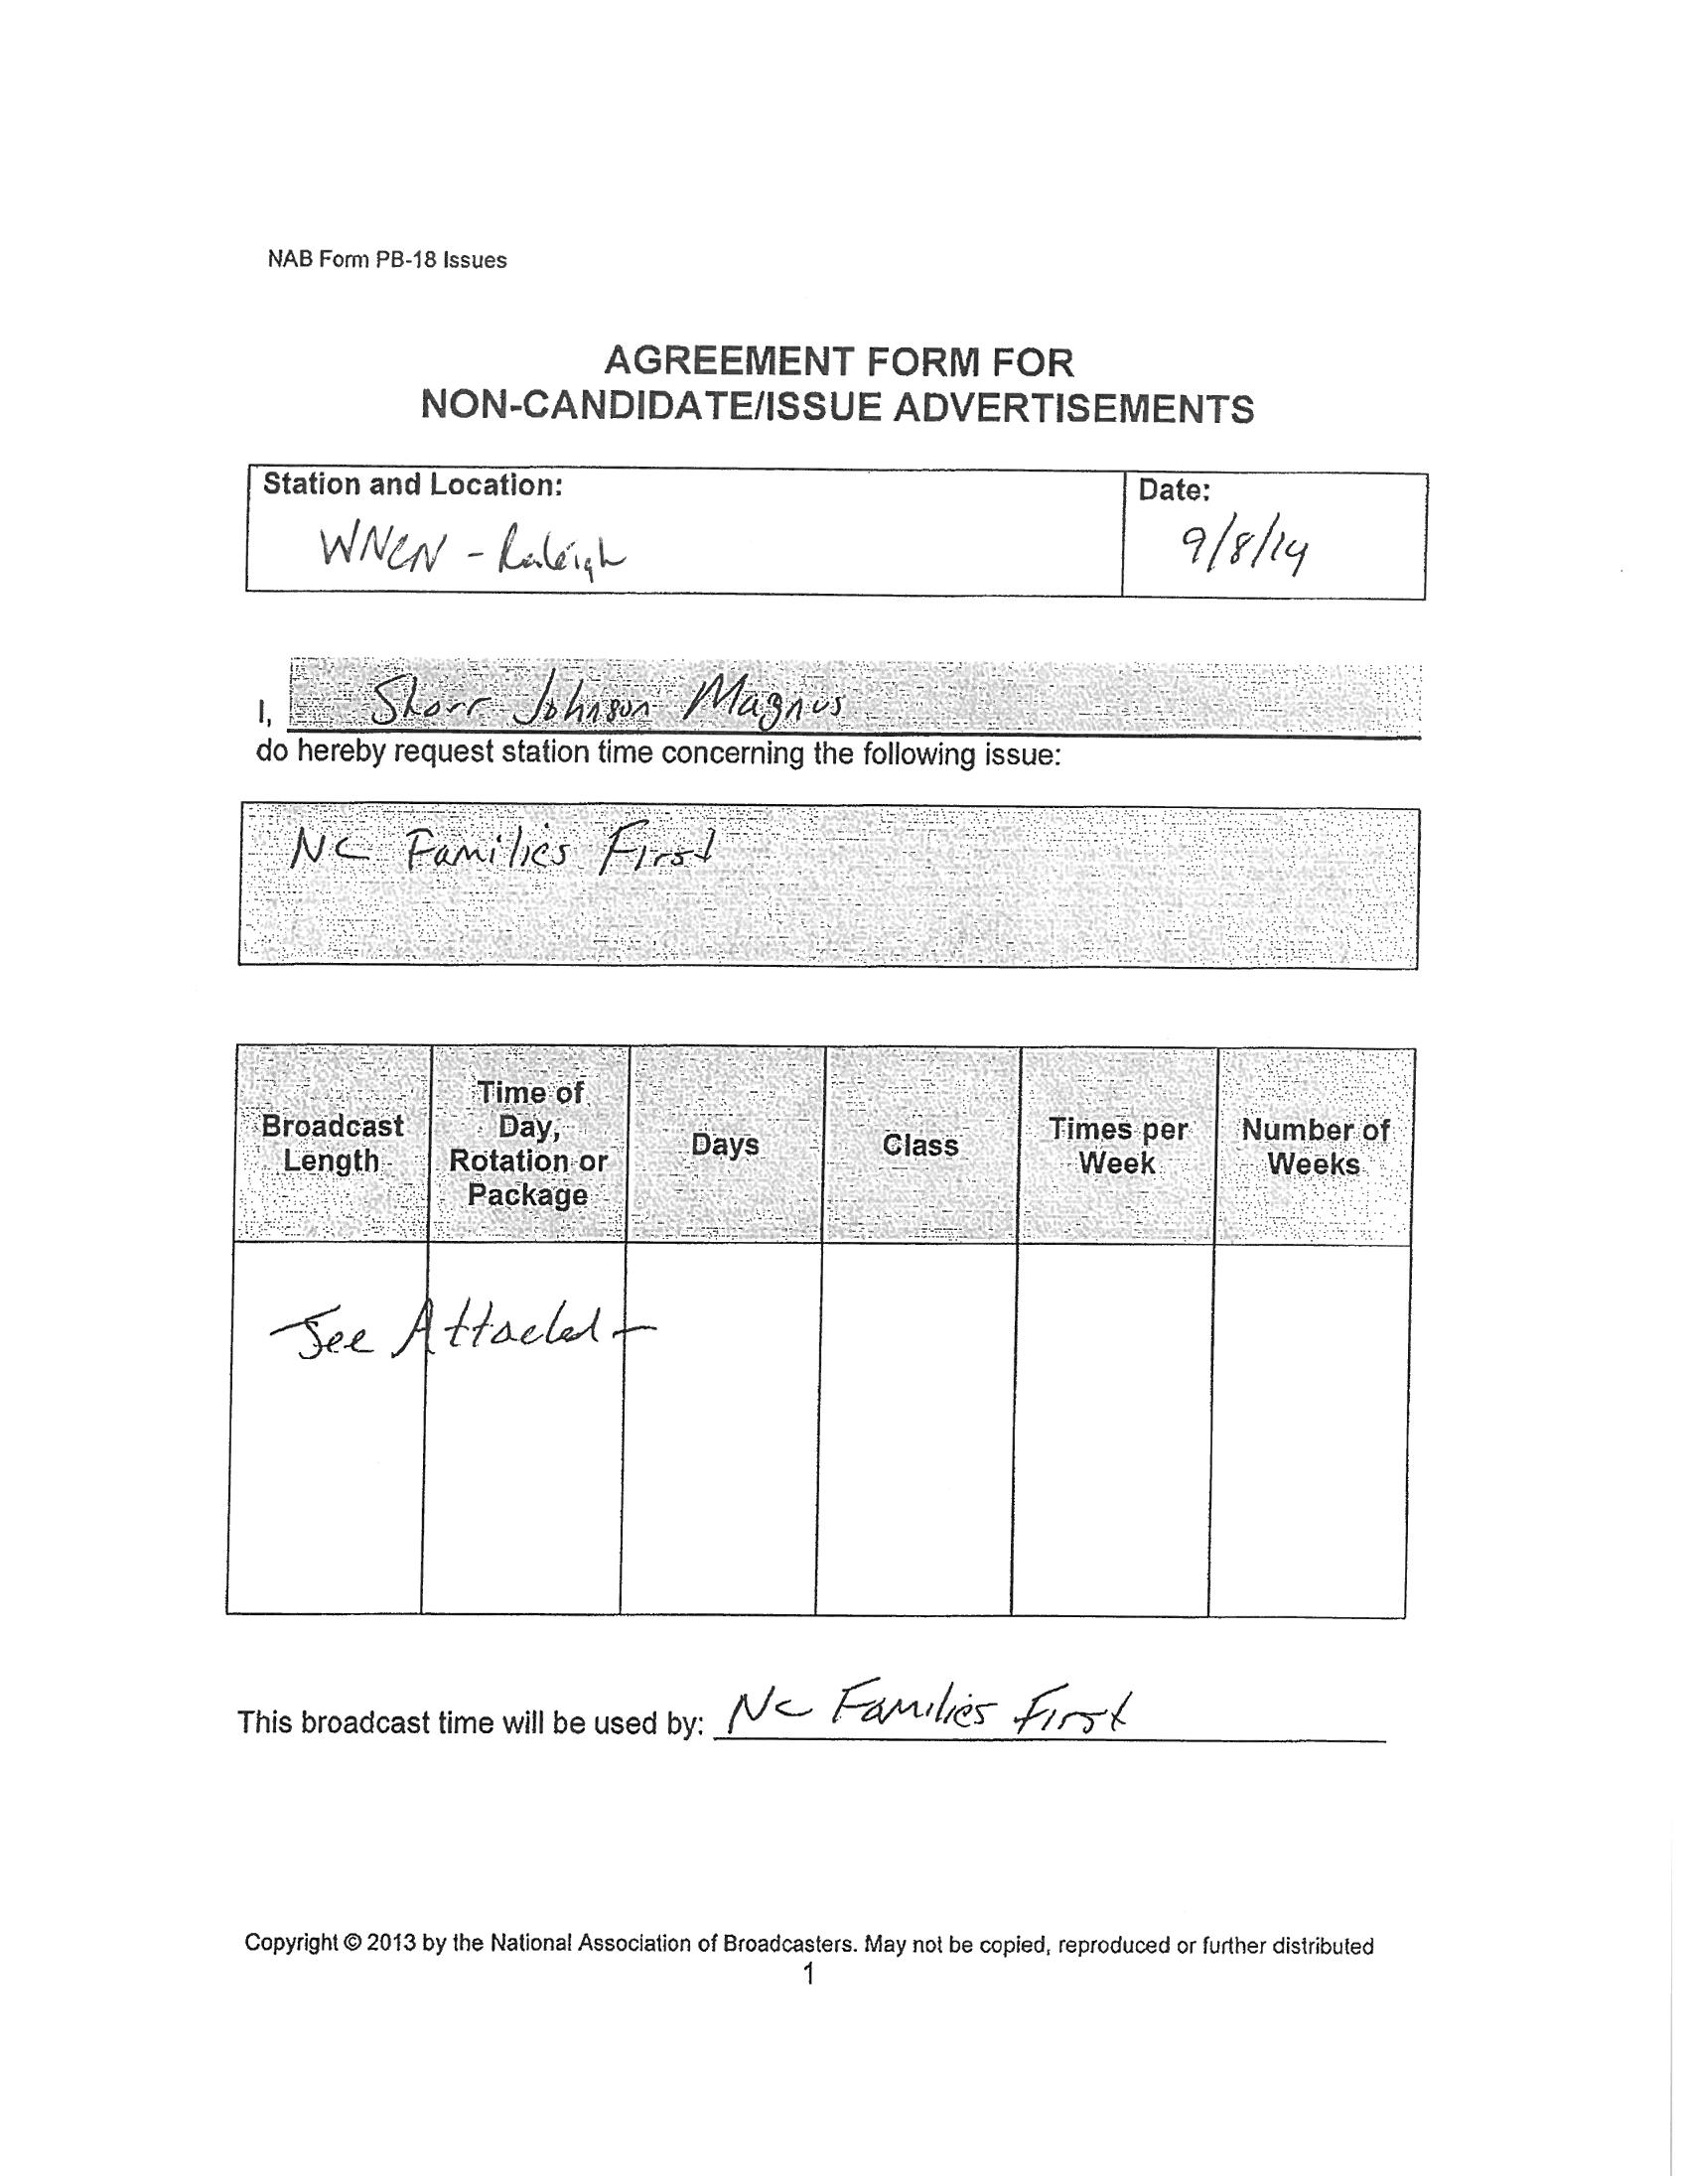 NAB Form PB-18 Issues
AGREEMENT FORM FOR
NON-CANDIDATE/ISSUE ADVERTISEMENTS
Station and Location:
Date:
WNCN - Raleigh
9/8/14
I, Shorr Johnson Magnus
do hereby request station time concerning the following issue:
NC Families First
Broadcast Length
Time of Day, Rotation or Package
Days
Class
Times per Week
Number of Weeks
See Attached
This broadcast time will be used by: NC Families First
Copyright © 2013 by the National Association of Broadcasters. May not be copied, reproduced or further distributed
1